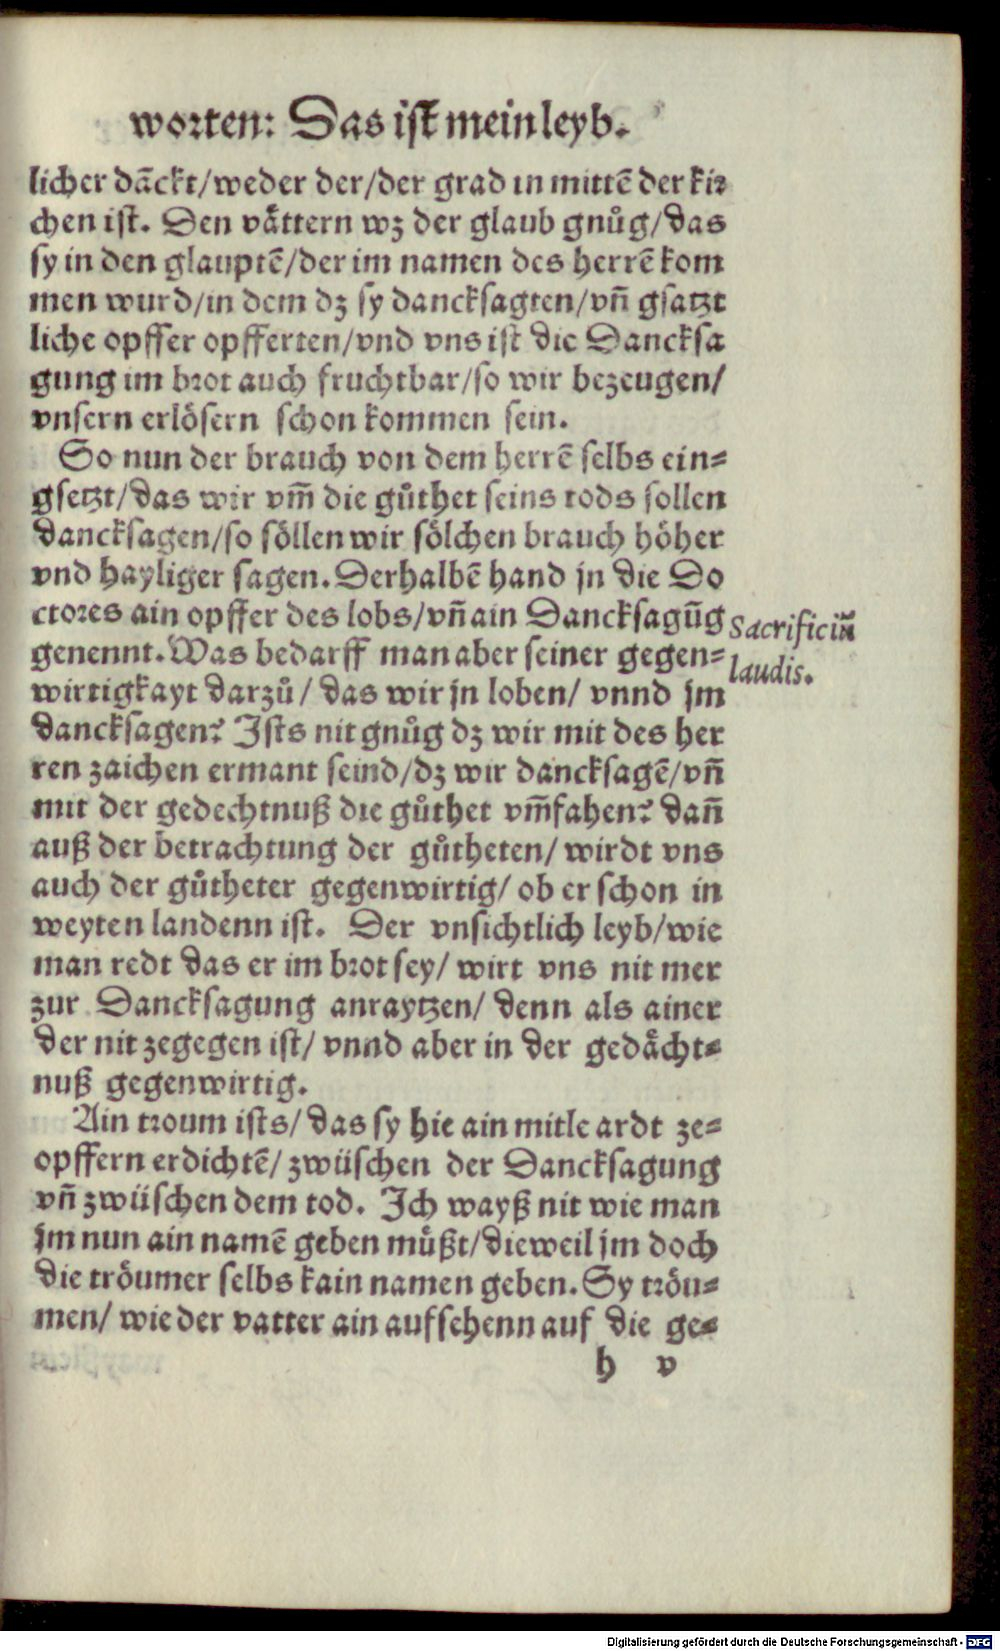 worten: Das ist mein leyb.
licher dāckt/weder der/der grad in mittē der kir
chen ist. Den vaͤttern wz der glaub gnuͦg/das
sy in den glauptē/der im namen des herrē kom
men wurd/in dem dz sy dancksagten/vn̄ gsatzt
liche opffer opfferten/vnd vns ist die Dancksa
gung im brot auch fruchtbar/so wir bezeugen/
vnsern erloͤsern schon kommen sein.
So nun der brauch von dem herrē selbs ein=
gsetzt/das wir vm̄ die guͦthet seins tods sollen
dancksagen/so soͤllen wir soͤlchen brauch hoͤher
vnd hayliger sagen. Derhalbē hand jn die Do
ctores ain opffer des lobs/vn̄ ain Dancksagūg
genennt. Was bedarff man aber seiner gegen=
wirtigkayt darzuͦ/ das wir jn loben/ vnnd jm
dancksagen? Ists nit gnuͦg dz wir mit des her
ren zaichen ermant seind/dz wir dancksagē/vn̄
mit der gedechtnuß die guͦthet vm̄fahen? dan̄
auß der betrachtung der guͦtheten/ wirdt vns
auch der guͦtheter gegenwirtig/ ob er schon in
weyten landenn ist. Der vnsichtlich leyb/wie
man redt das er im brot sey/ wirt vns nit mer
zur Dancksagung anraytzen/ denn als ainer
der nit zegegen ist/ vnnd aber in der gedaͤcht=
nuß gegenwirtig.
Ain troum ists/ das sy hie ain mitle ardt ze=
opffern erdichtē/ zwüschen der Dancksagung
vn̄ zwüschen dem tod. Ich wayß nit wie man
jm nun ain namē geben muͤßt/dieweil jm doch
die troͤumer selbs kain namen geben. Sy troͤu=
men/ wie der vatter ain aufsehenn auf die ge=
h v
Sacrificiū
laudis.
Digitalisierung gefördert durch die Deutsche Forschungsgemeinschaft - DFG